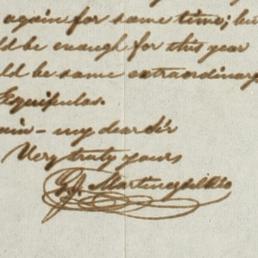 again for some time; but
ld be enough for this year
uld be some extraordinary
Equipulas.
ain - my dear Sir
Very truly yours